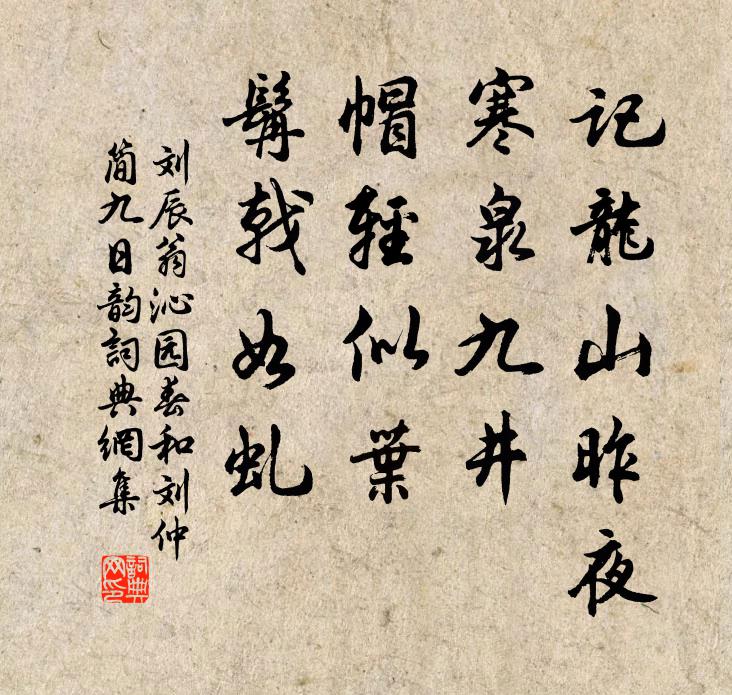 记龍山昨夜
寒泉九井
帽輕似葉
鬅戟如虬
刘辰翁沁园春和刘仲
简九日韵詞典網集
詞典网印